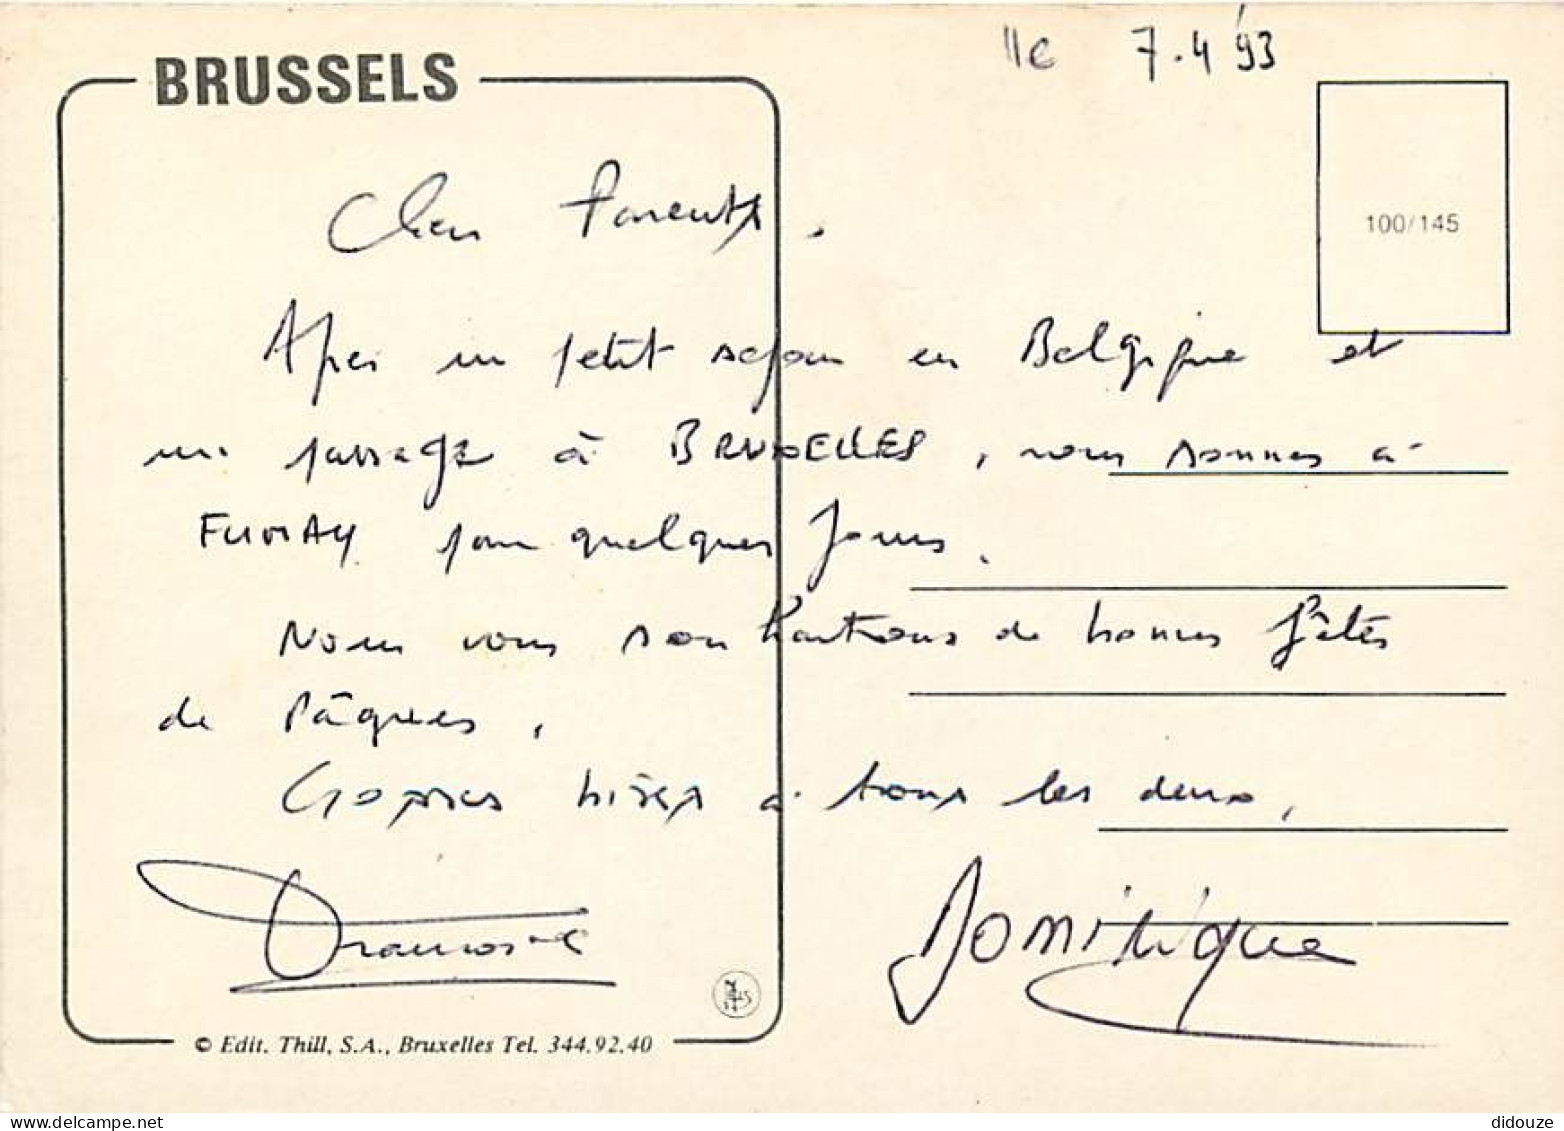 lle 7.4 '93
BRUSSELS
100/145
Cher Parents,
Après un petit séjour en Belgique et
un passage à BRUXELLES, nous sommes à
FUMAY pour quelques jours.
Nous vous souhaitons de bonnes fêtes
de Pâques.
Grosses bises à tous les deux,
Françoise
Dominique
© Edit. Thill, S.A., Bruxelles Tel. 344.92.40
didouze